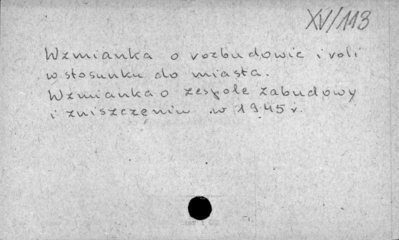 XV/113
Wzmianka o rozbudowie i roli
w stosunku do miasta.
Wzmianka o zespole zabudowy
i zniszczeniu w 1945 r.